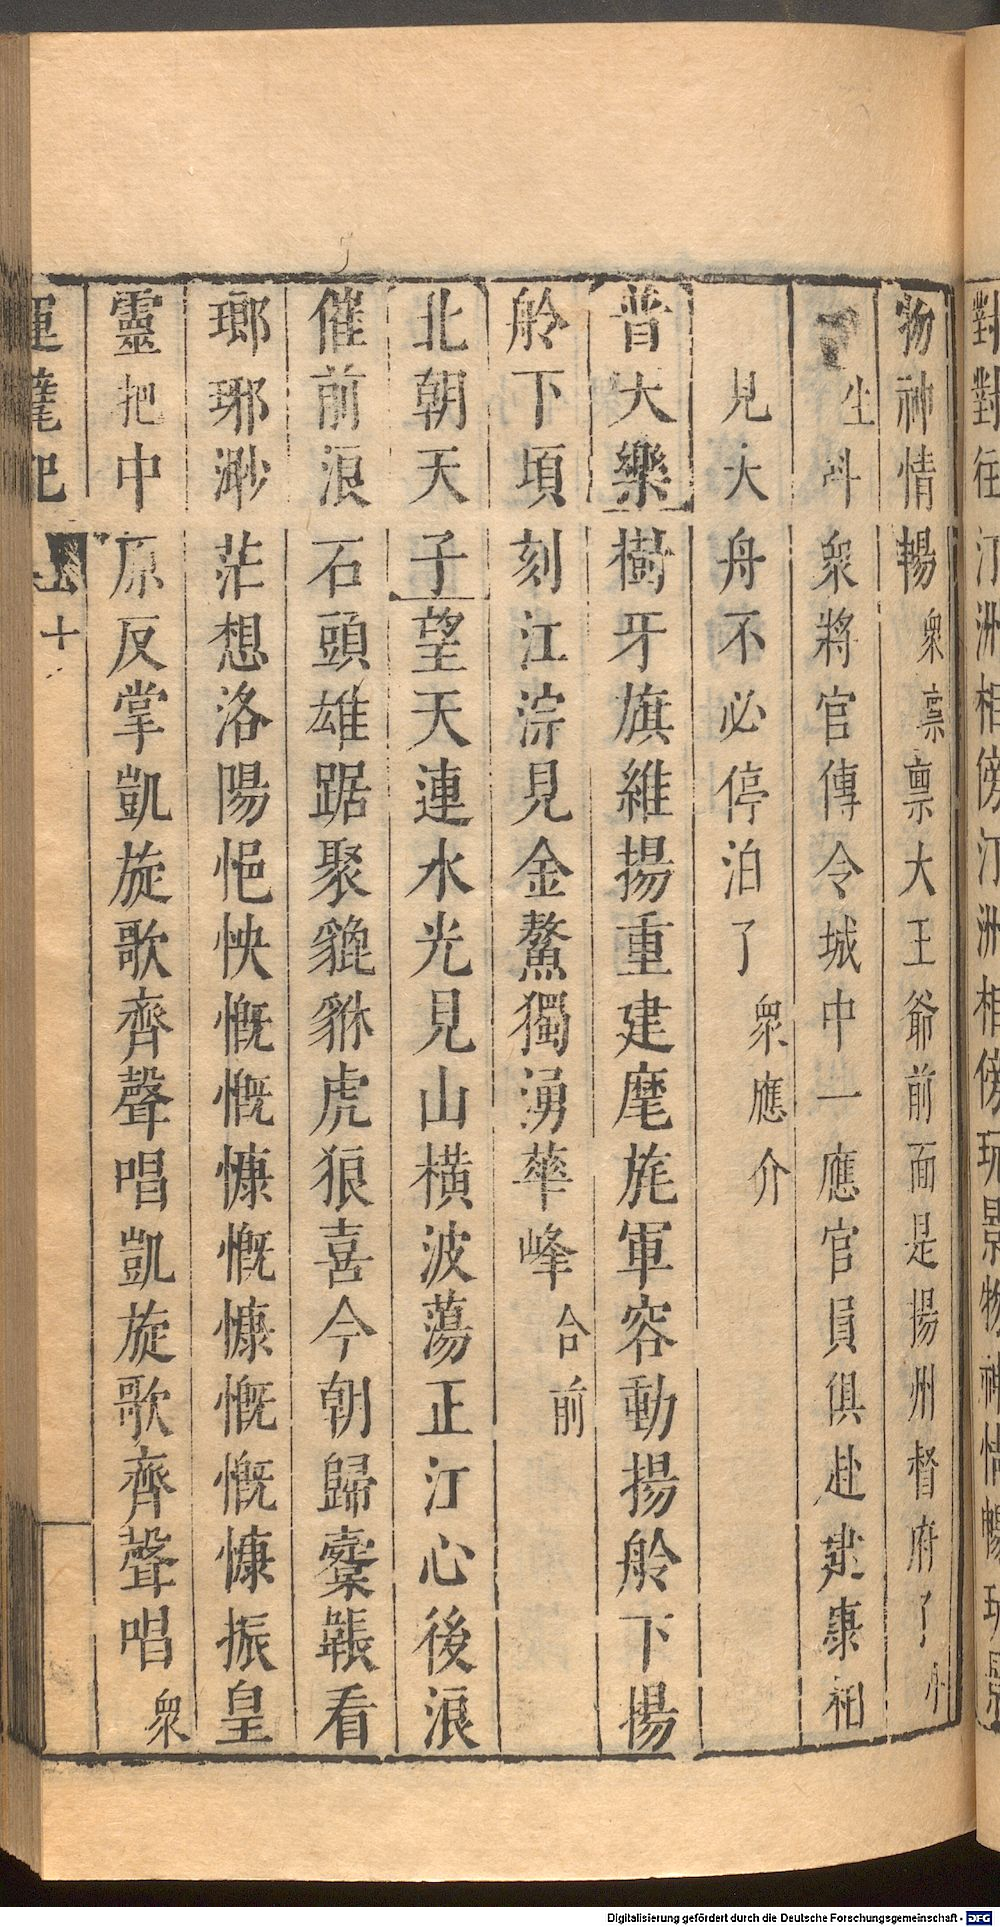 對對往汀洲相傍汀洲相傍玩景物神情暢玩景
物神情暢衆稟稟大王爺前面是揚州督府了小
坐斗衆將官傳令城中一應官員俱赴建康相
見大舟不必停泊了衆應介
普天樂樹牙旗維揚重建麾旄軍容動揚舲下揚
舲下頃刻江淙見金鰲獨湧華峰合前
北朝天子望天連水光見山橫波蕩正江心後浪
催前浪石頭雄踞聚貔貅虎狼喜今朝歸櫜韔看
瑯琊渺茫想洛陽悒怏慨慨慷慨慷慨慨慷振皇
靈把中原反掌凱旋歌齊聲唱凱旋歌齊聲唱衆
運甓記
上
十
Digitalisierung gefördert durch die Deutsche Forschungsgemeinschaft - DFG